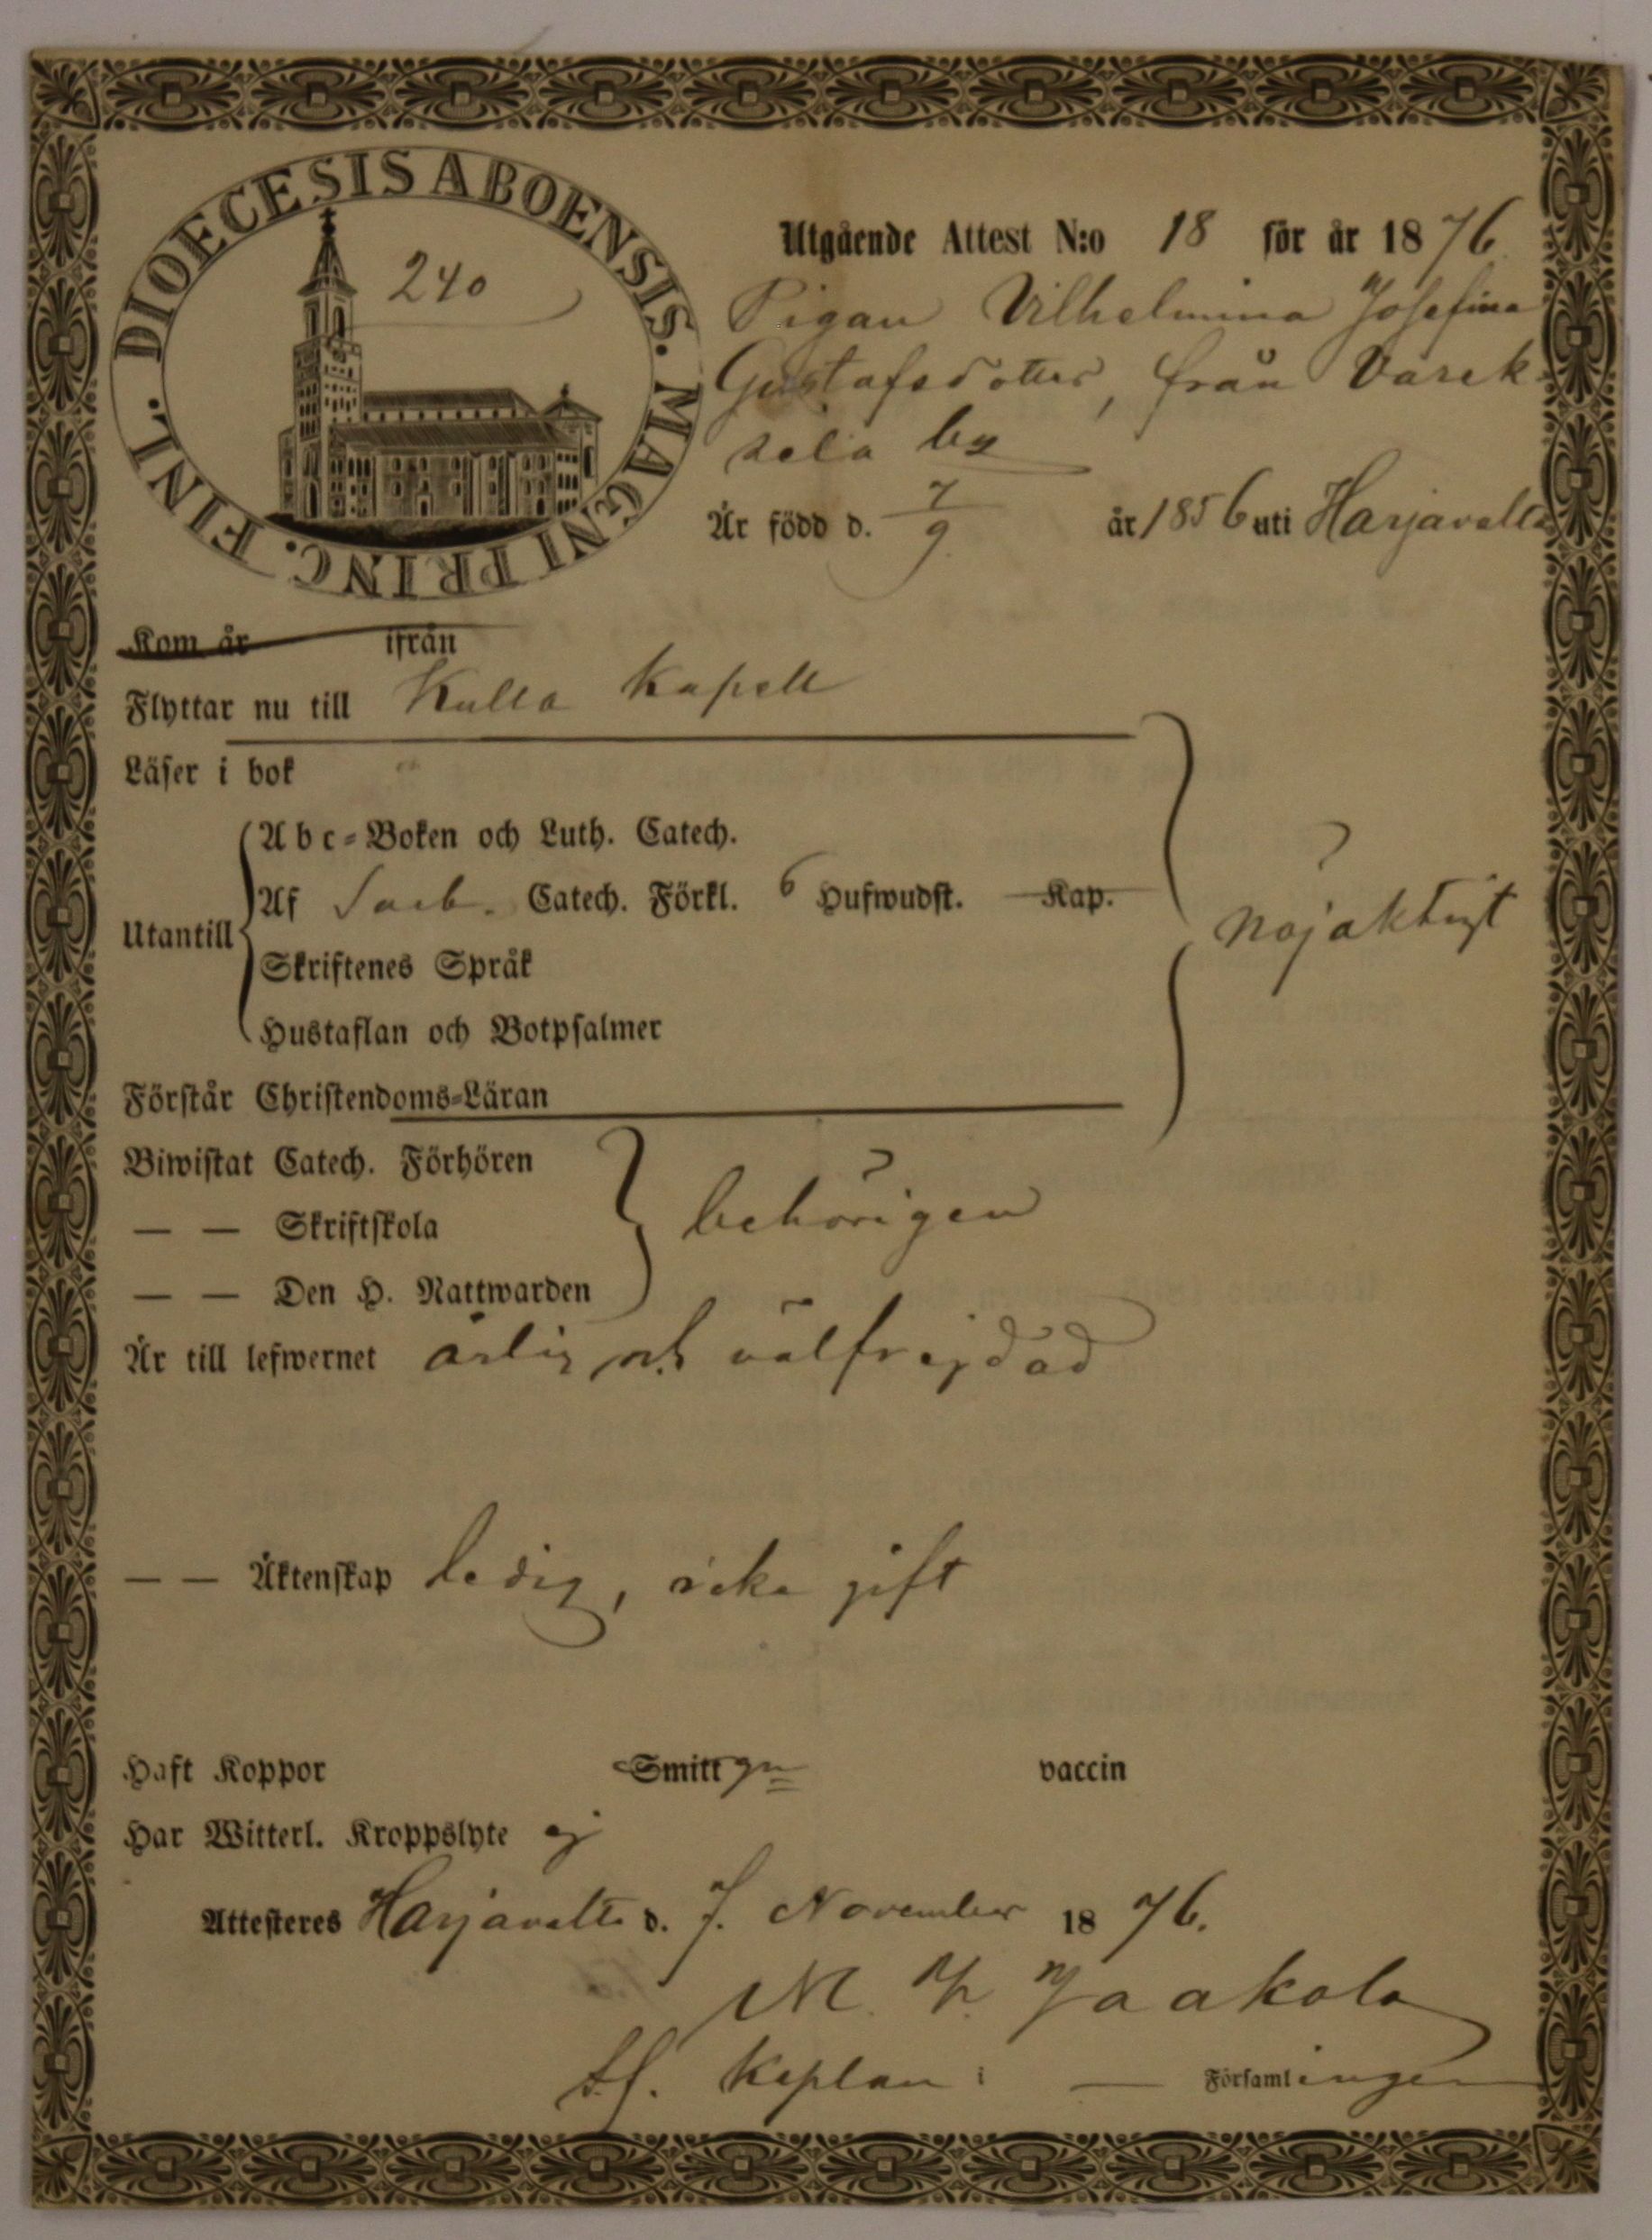 DIOECESIS ABOENSIS. MAGNI PRINC. FINL.
240
Utgående Attest N:o 18 för år 1876
Pigan Vilhelmina Josefina
Gustafsdotter, från Varek-
selä by
Är född d. 7/9 år 1856 uti Harjavalta
Kom år ifrån
Flyttar nu till Kulla Kapell
Läser i bok
Abc-Boken och Luth. Catech.
Af Catech. Förkl. 6 Hufwudst. Kap.
nöjaktigt
Utantill
Skriftenes Språk
Hustaflan och Botpsalmer
Förstår Christendoms-Läran
Biwistat Catech. Förhören
— — Skriftskola
behörigen
— — Den H. Nattwarden
Är till lefwernet ärlig och välfrejdad
— — Äktenskap ledig, icke gift
Haft Koppor Smitt vaccin
Har Witterl. Kroppslyte ej
Attesteres Harjavalta d. 7. November 1876.
M. Jaakola
Kaplan i — Församlingen